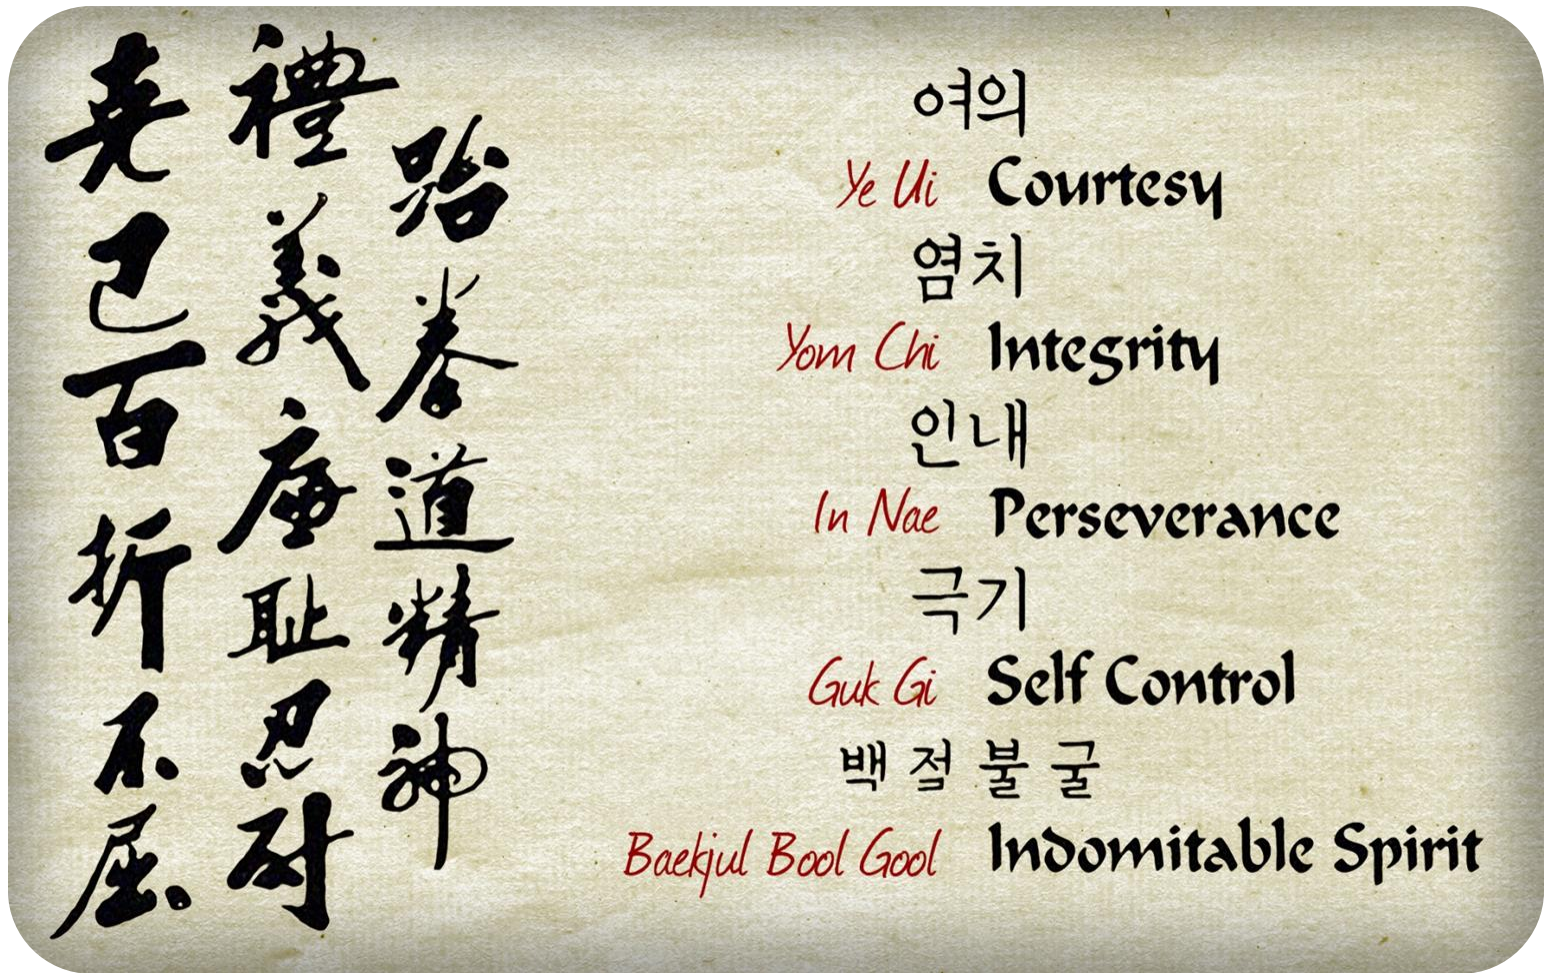 跆拳道精神
禮義廉耻忍耐
克己百折不屈
여의
Ye Ui Courtesy
염치
Yom Chi Integrity
인내
In Nae Perseverance
극기
Guk Gi Self Control
백 점 불 굴
Baekjul Bool Gool Indomitable Spirit